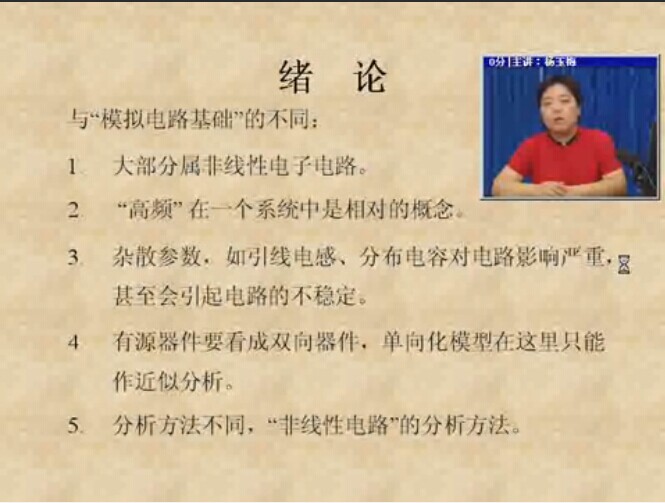 0分|主讲：杨玉梅
绪 论
与“模拟电路基础”的不同：
1. 大部分属非线性电子电路。
2 “高频” 在一个系统中是相对的概念。
3 杂散参数，如引线电感、分布电容对电路影响严重，
甚至会引起电路的不稳定。
4 有源器件要看成双向器件，单向化模型在这里只能
作近似分析。
5. 分析方法不同，“非线性电路”的分析方法。